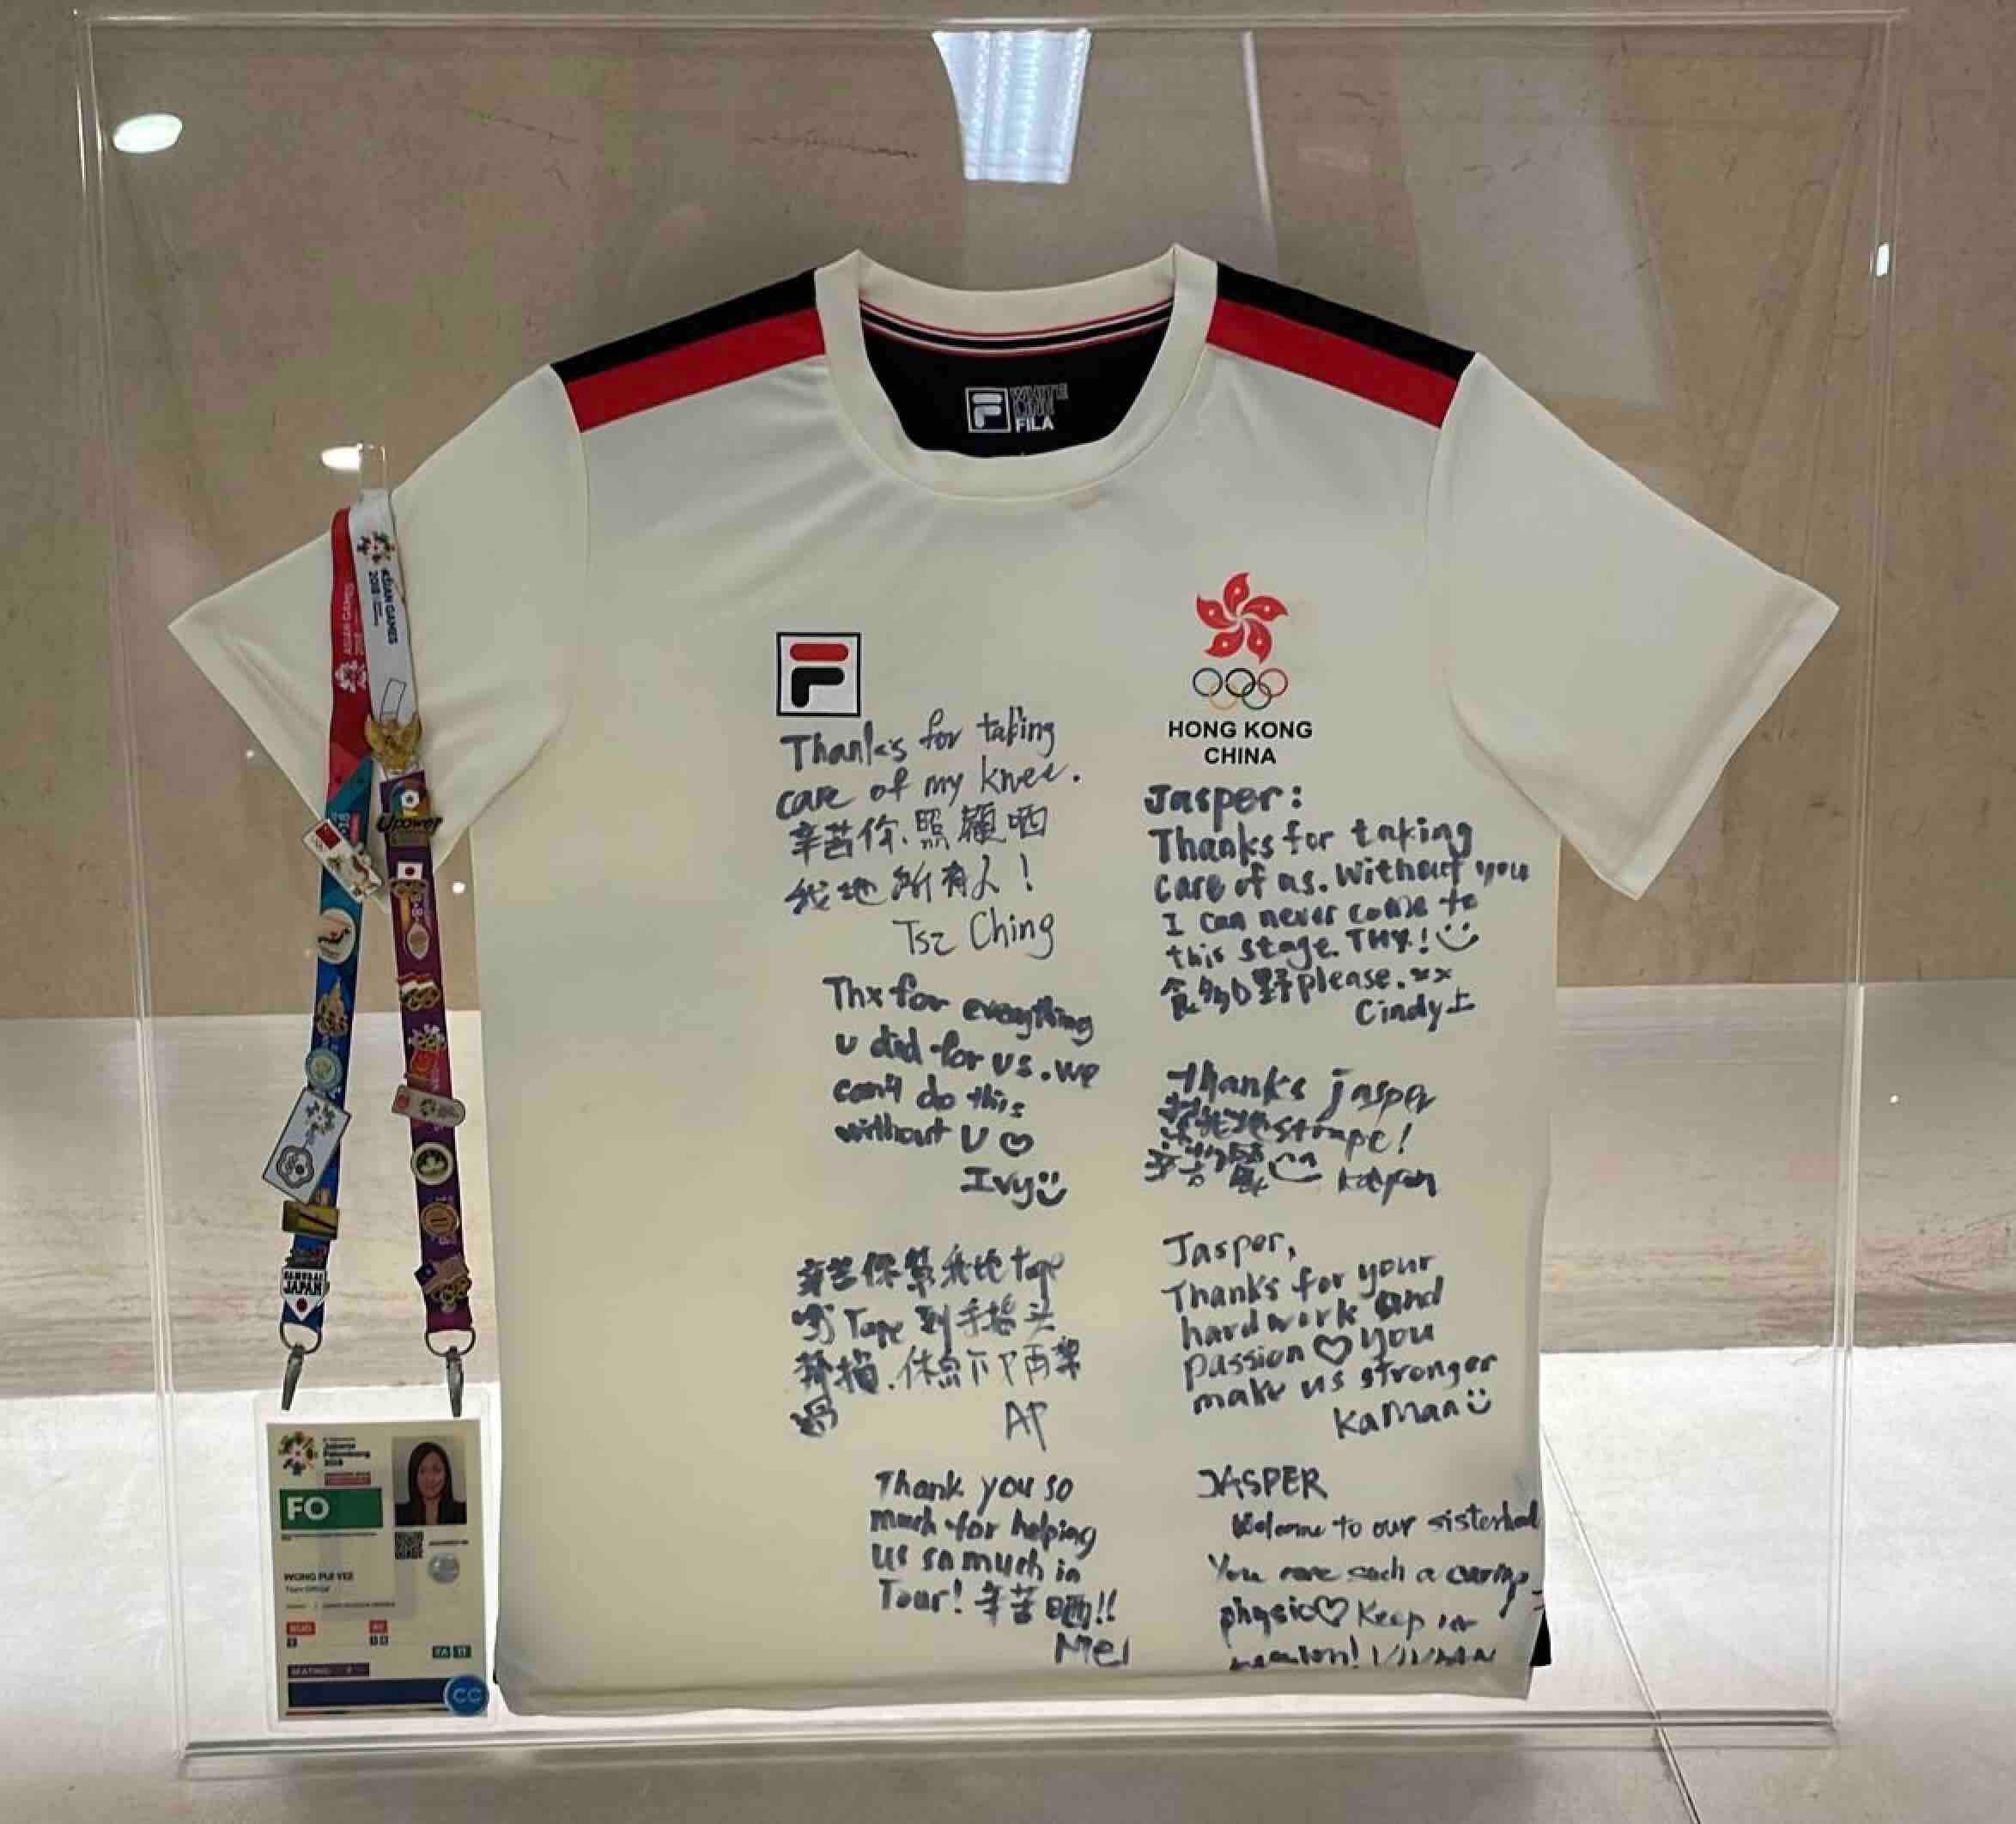 WHITE
LINE
FILA
ASIAN GAMES
2018
ASIAN GAMES
2018
HONG KONG
CHINA
Thanks for taking
care of my knee.
辛苦你.照顧晒
我地所有人！
Tsz Ching
Thx for everything
u did for us. we
can't do this
without U ♡
Ivy
辛苦你幫我地tape
Tape到手指頭
休息下再
AP
Thank you so
much for helping
us so much in
Tour! 辛苦晒!!
Mei
Jasper:
Thanks for taking
care of us. Without you
I can never come to
this stage. THX!
食多D野please.xx
Cindy上
Thanks jasper
我地
辛苦晒
Jasper,
Thanks for your
hardwork and
passion ♡ you
make us stronger
KaMan
JASPER
Welcome to our sisterhood
You are such a caring
physio♡ Keep
Upower
SAMURAI
JAPAN
Jakarta
Palembang
2018
FO
WONG PUI YEE
Team Official
SEATING
CC